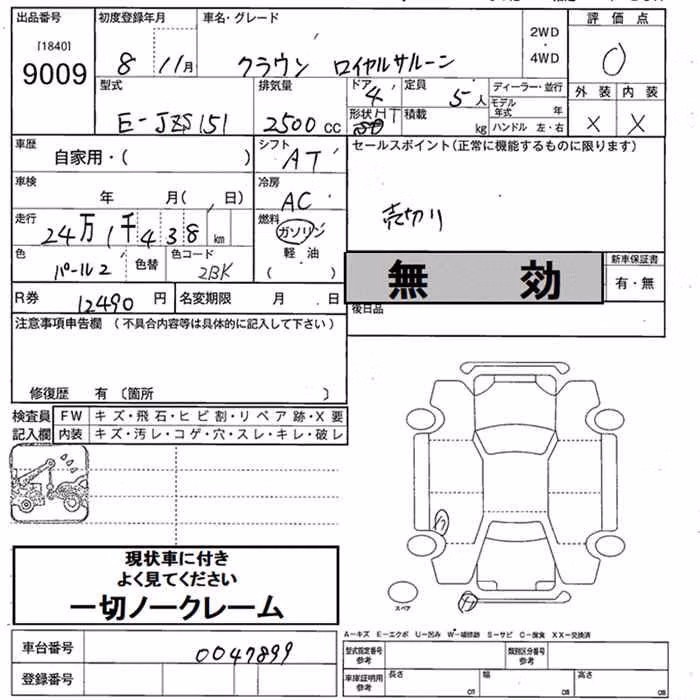 出品番号
[1840]
9009
初度登録年月
8 11月
車名・グレード
クラウン ロイヤルサルーン
2WD
・
4WD
評価点
0
型式
E-JZS151
排気量
2500cc
ドア
4
形状 HT
定員
5人
積載
kg
ディーラー・並行
モデル年式 年
ハンドル 左・右
外装 内装
X X
車歴
自家用・( )
シフト
AT
セールスポイント(正常に機能するものに限ります)
売切り
車検
年 月( , 日)
冷房
AC
走行
24万1千438km
燃料
ガソリン
軽油
( )
色
パール2
色替
色コード
2BK
無 効
新車保証書
有・無
R券
12490円
名変期限 月 日
後日品
注意事項申告欄 (不具合内容等は具体的に記入して下さい)
修復歴 有 〔箇所 〕
検査員
記入欄
FW キズ・飛石・ヒビ割・リペア跡・X要
内装 キズ・汚レ・コゲ・穴・スレ・キレ・破レ
現状車に付き
よく見てください
一切ノークレーム
スペア
A-キズ E-エクボ U-凹み W-補修跡 S-サビ C-腐食 XX-交換済
車台番号
0047899
登録番号
型式指定番号
参考
類別区分番号
参考
車庫証明用
参考
長さ
幅
高さ